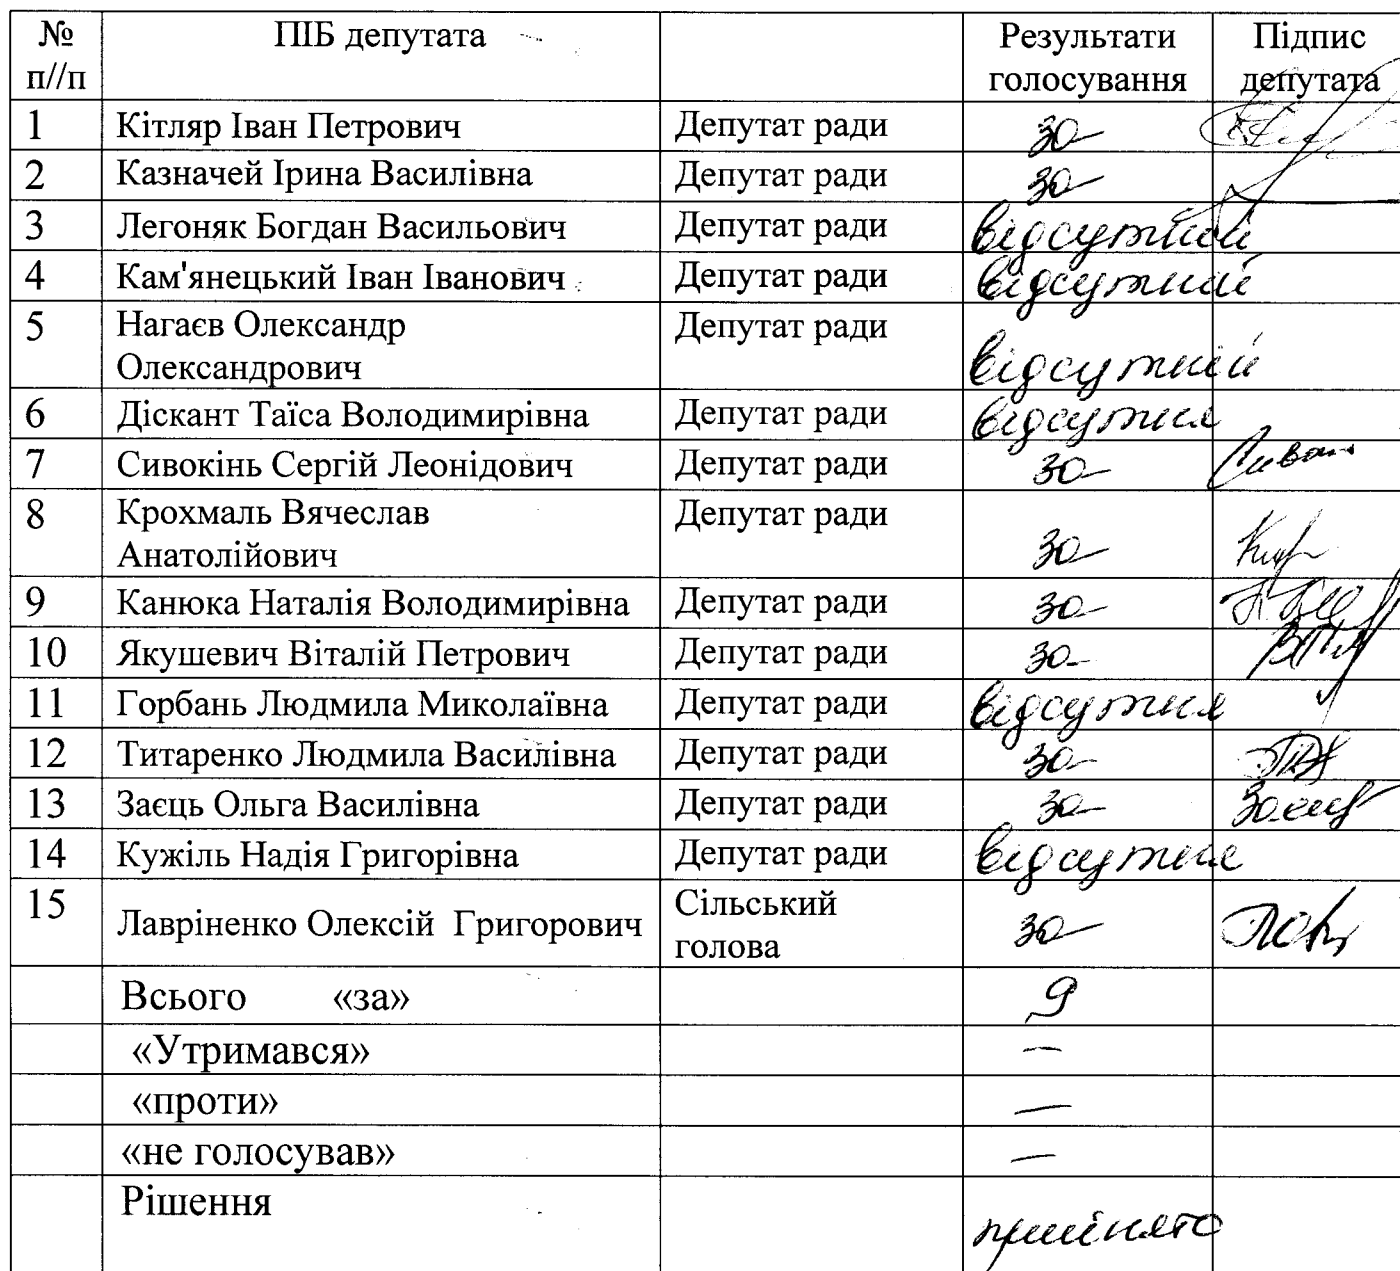 № ПІБ депутата Результати Підпис
п//п голосування депутата
1 Кітляр Іван Петрович Депутат ради за
2 Казначей Ірина Василівна Депутат ради за
3 Легоняк Богдан Васильович Депутат ради відсутній
4 Кам'янецький Іван Іванович Депутат ради відсутній
5 Нагаєв Олександр Депутат ради
Олександрович відсутній
6 Діскант Таїса Володимирівна Депутат ради відсутня
7 Сивокінь Сергій Леонідович Депутат ради за
8 Крохмаль Вячеслав Депутат ради
Анатолійович за
9 Канюка Наталія Володимирівна Депутат ради за
10 Якушевич Віталій Петрович Депутат ради за
11 Горбань Людмила Миколаївна Депутат ради відсутня
12 Титаренко Людмила Василівна Депутат ради за
13 Заєць Ольга Василівна Депутат ради за
14 Кужіль Надія Григорівна Депутат ради відсутня
15 Лавріненко Олексій Григорович Сільський
голова за
Всього «за» 9
«Утримався» —
«проти» —
«не голосував» —
Рішення прийнято